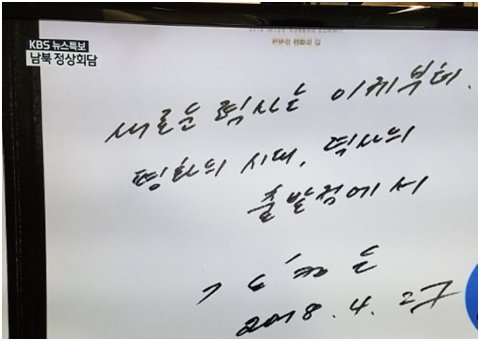 KBS 뉴스특보
남북 정상회담
판문점 평화의 집
새로운 력사는 이제부터.
평화의 시대, 력사의
출발점에서
김정은
2018. 4. 27